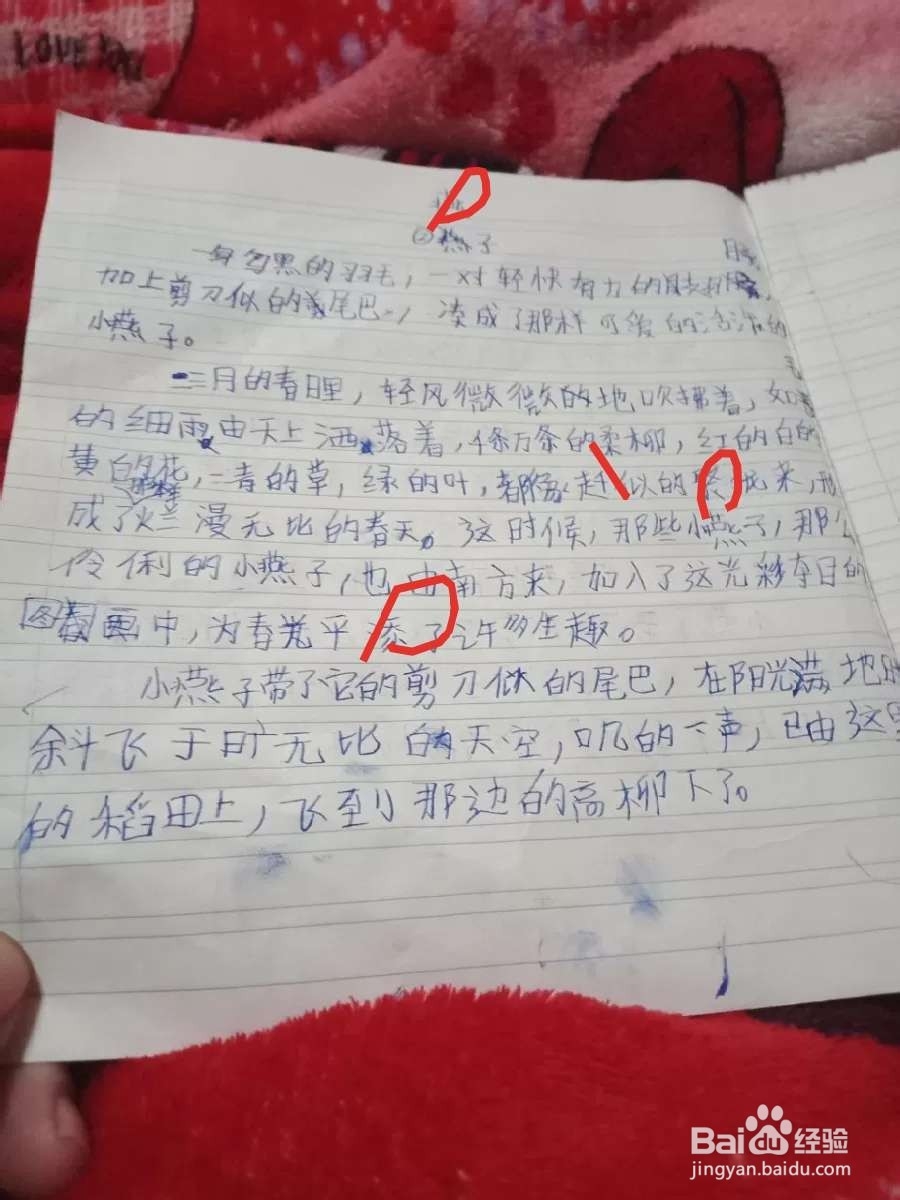 LOVE
②燕子
月
一身勾黑的羽毛，一对轻快有力的
加上剪刀似的尾巴，凑成了那样可爱的活泼的
小燕子。
毛
二三月的春日里，轻风微微的地吹拂着，如
的细雨由天上洒落着，千条万条的柔柳，红的白的
黄的花，青的草，绿的叶，都像赶似的聚拢来，形
成了烂漫无比的春天。这时候，那些小燕子，那么
伶俐的小燕子，也由南方来，加入了这光彩夺目的
图画中，为春光平添了许多生趣。
小燕子带了它的剪刀似的尾巴，在阳光满地时
斜飞于旷无比的天空，叽的一声，已由这里
的稻田上，飞到那边的高柳下了。
Baidu经验
jingyan.baidu.com